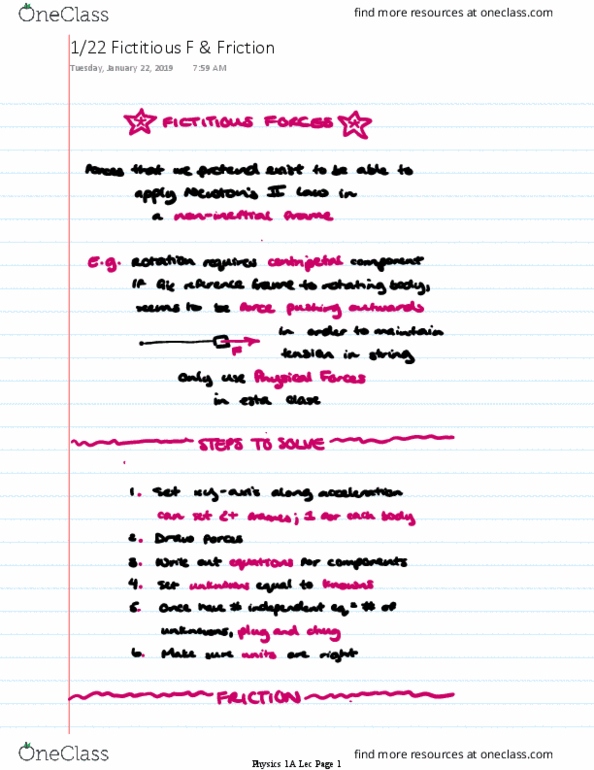 OneClass
find more resources at oneclass.com
1/22 Fictitious F & Friction
Tuesday, January 22, 2019 7:59 AM
FICTITIOUS FORCES
Forces that we pretend exist to be able to
apply Newton's II Law in
a non-inertial frame
E.g. Rotation requires centripetal component
If fix reference frame to rotating body,
seems to be force pushing outwards
in order to maintain
F
tension in string
Only use Physical Forces
in esta clase
STEPS TO SOLVE
1. Set xy-axis along acceleration
can set 2+ frames; 1 for each body
2. Draw forces
3. Write out equations for components
4. Set unknowns equal to knowns
5. Once have # independent eq = # of
unknowns, plug and chug
6. Make sure units are right
FRICTION
OneClass
Physics 1A Lec Page 1
find more resources at oneclass.com